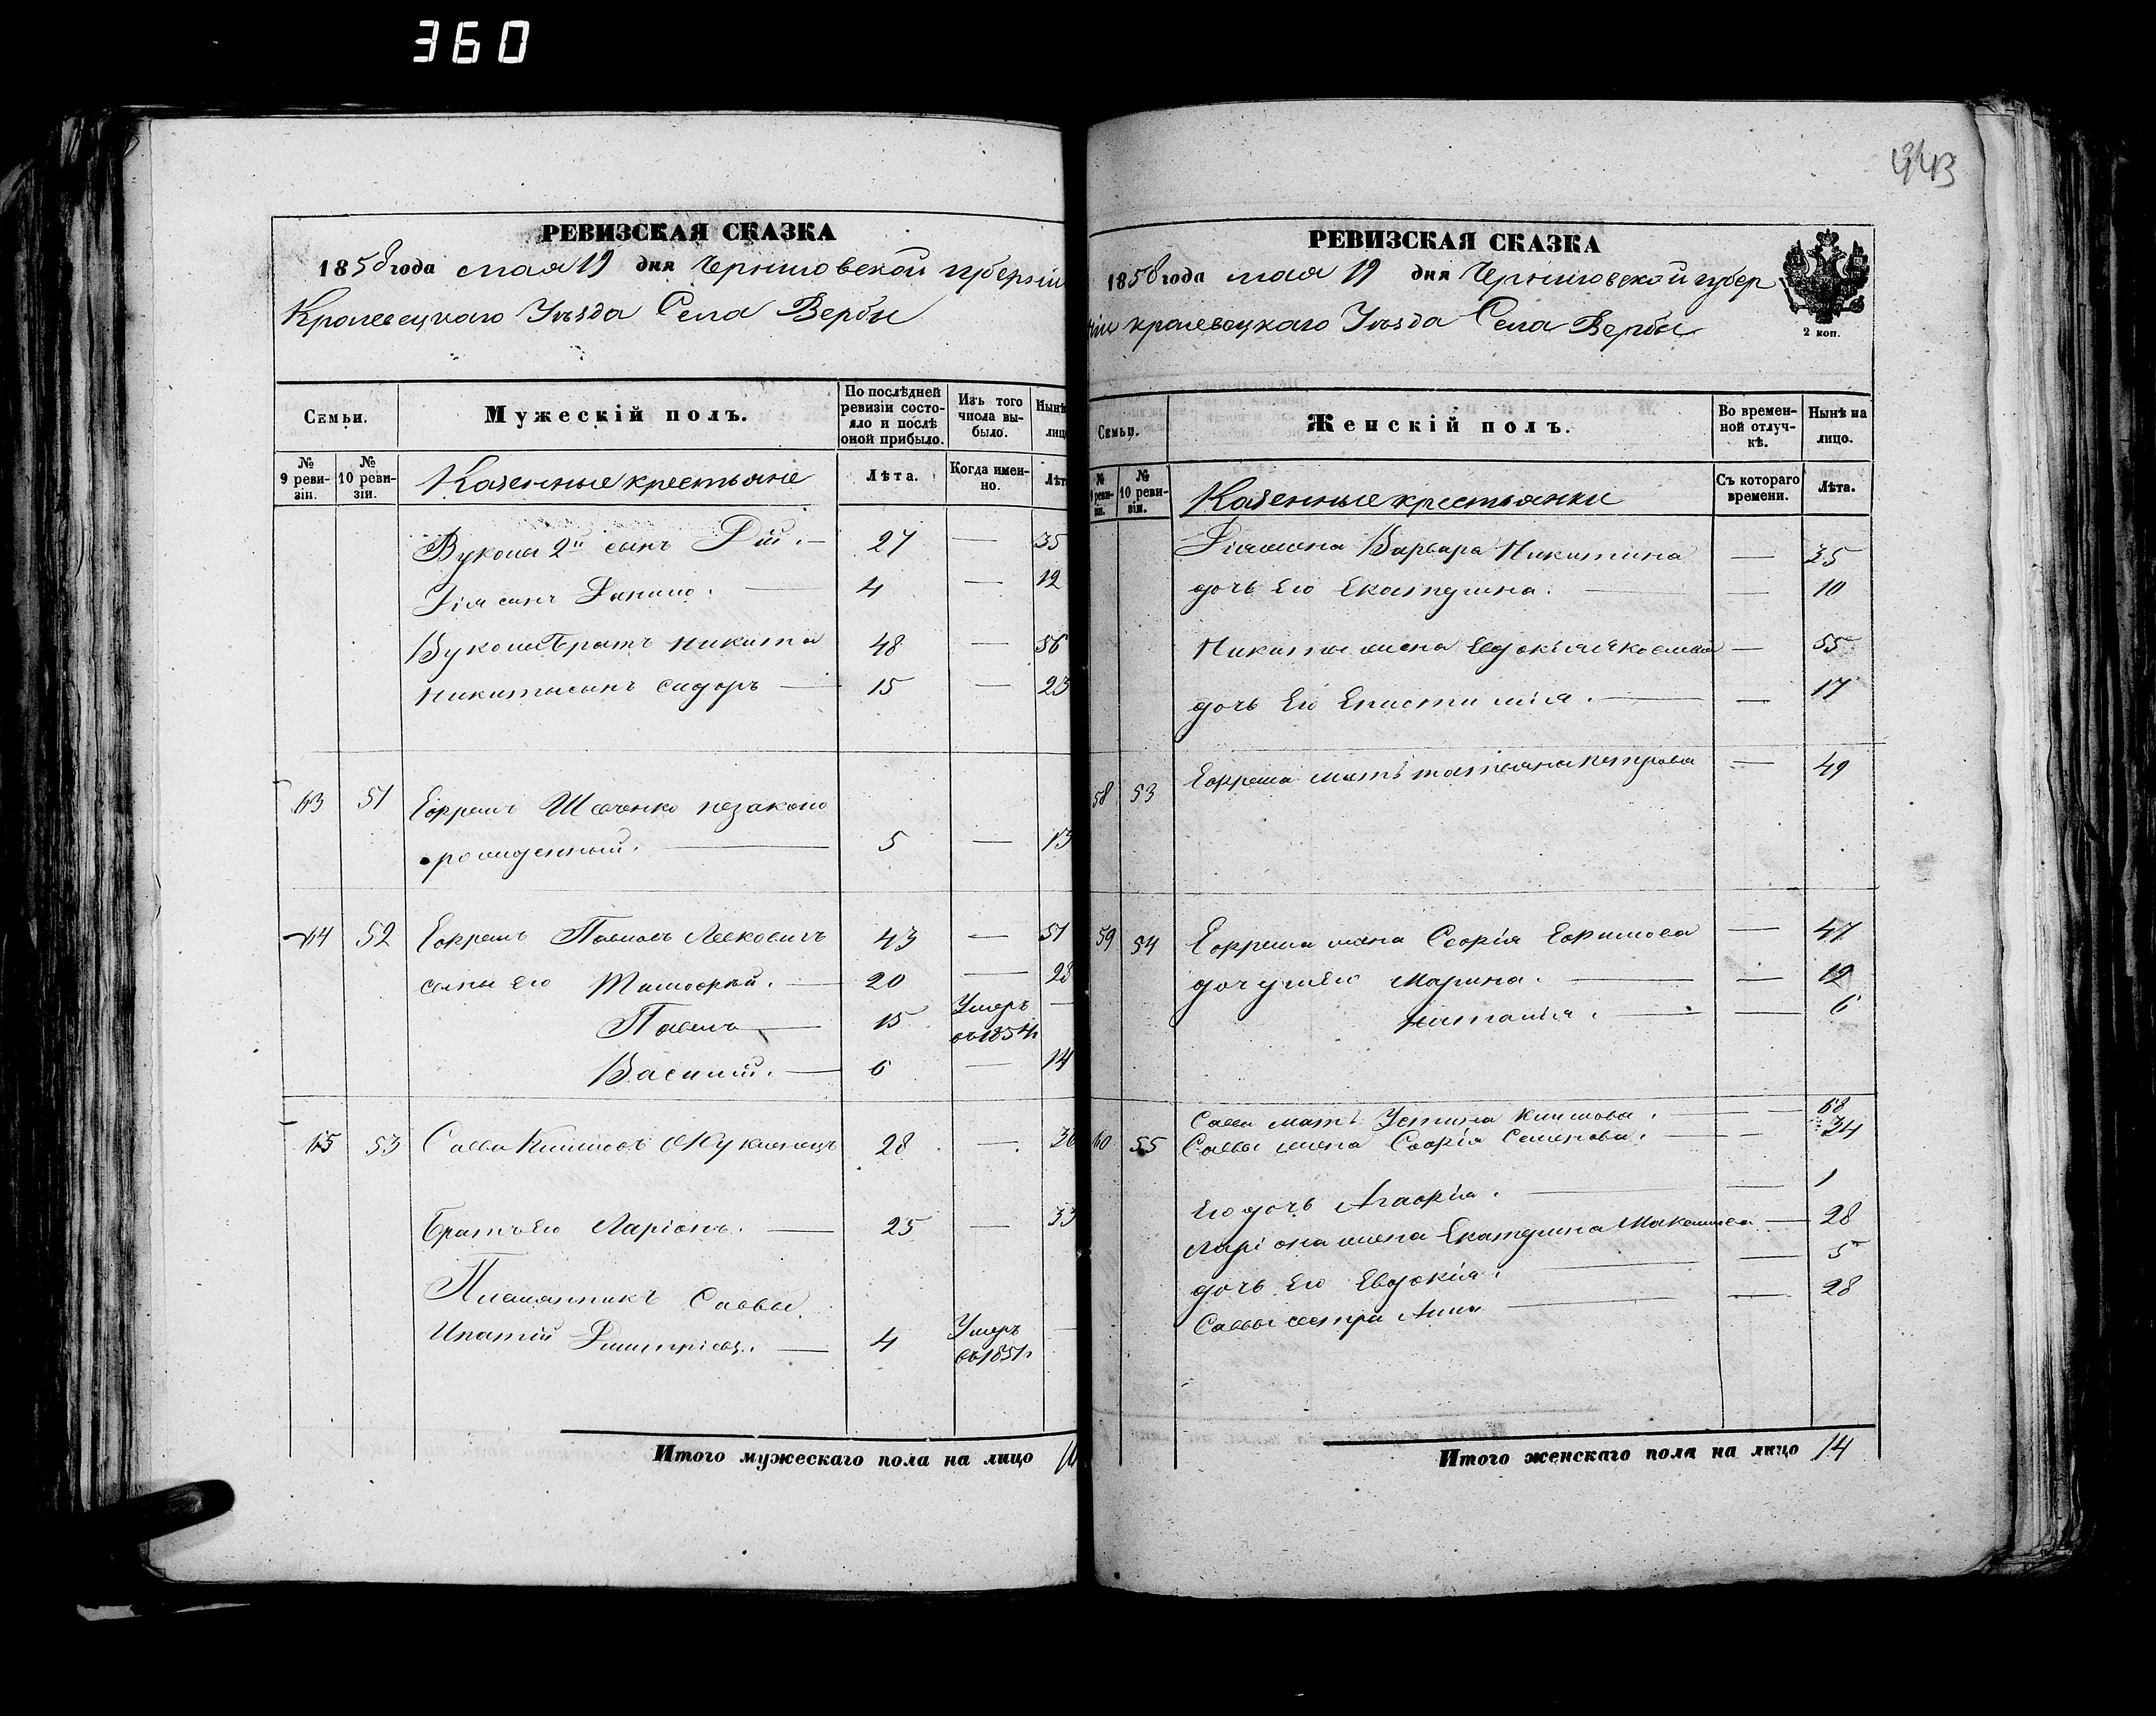 360
РЕВИЗСКАЯ СКАЗКА
1858 года мая 19 дня Черниговской губерніи
Кролевецкаго Уѣзда Села Вербы
Семьи.
Мужескій полъ.
По послѣдней ревизіи состояло и послѣ оной прибыло.
Изъ того числа выбыло.
Нынѣ
лиц
№ 9 ревизіи.
№ 10 ревизіи.
Казенные крестьяне
Лѣта.
Когда именно.
Лѣт
Вуколы 2й сынъ Дій. — 27 — 35
Дія сынъ Данило. — 4 — 12
Вуколы братъ Никита 48 — 56
Никиты сынъ Сидоръ — 15 — 23
63 51 Ефремъ Шевченко незаконо
рожденный. — 5 — 13
64 52 Ефремъ Павловъ 43 — 51
сыны его Тимофей. — 20 — 28
Павелъ — 15 Умеръ —
въ 1854 г
Василій. — 6 — 14
65 53 Савва Климовъ 28 — 36
Братъ его Ларіонъ. — 25 — 33
Племянникъ Саввы
Ипатій Дмитріевъ. — 4 Умеръ —
въ 1851 г
Итого мужескаго пола на лицо
943
РЕВИЗСКАЯ СКАЗКА
1858 года мая 19 дня Черниговской губер
ніи Кролевецкаго Уѣзда Села Вербы
2 коп.
Семьи.
Женскій полъ.
Во временной отлучкѣ.
Нынѣ на лицо.
№ ревизіи.
№ 10 ревизіи.
Казенные крестьянки
Съ котораго времени.
Лѣта.
Дія жена Варвара Никитина — 35
дочь Его Екатерина. — — 10
Никиты жена Евдокія — 55
дочь Его Епистимія. — — 17
58 53 Ефрема мать Татіана Петрова — 49
59 54 Ефрема жена Софія Ефимова — 47
дочери Его Марина. — — 12
Наталія. — — 6
Саввы мать Устина Климова. — — 68
60 55 Саввы жена Софія Семенова. — — 34
Его дочь Агафія. — — 1
Ларіона жена Екатерина Максимова — 28
дочь Его Евдокія. — — 5
Саввы сестра Анна — — 28
Итого женскаго пола на лицо 14